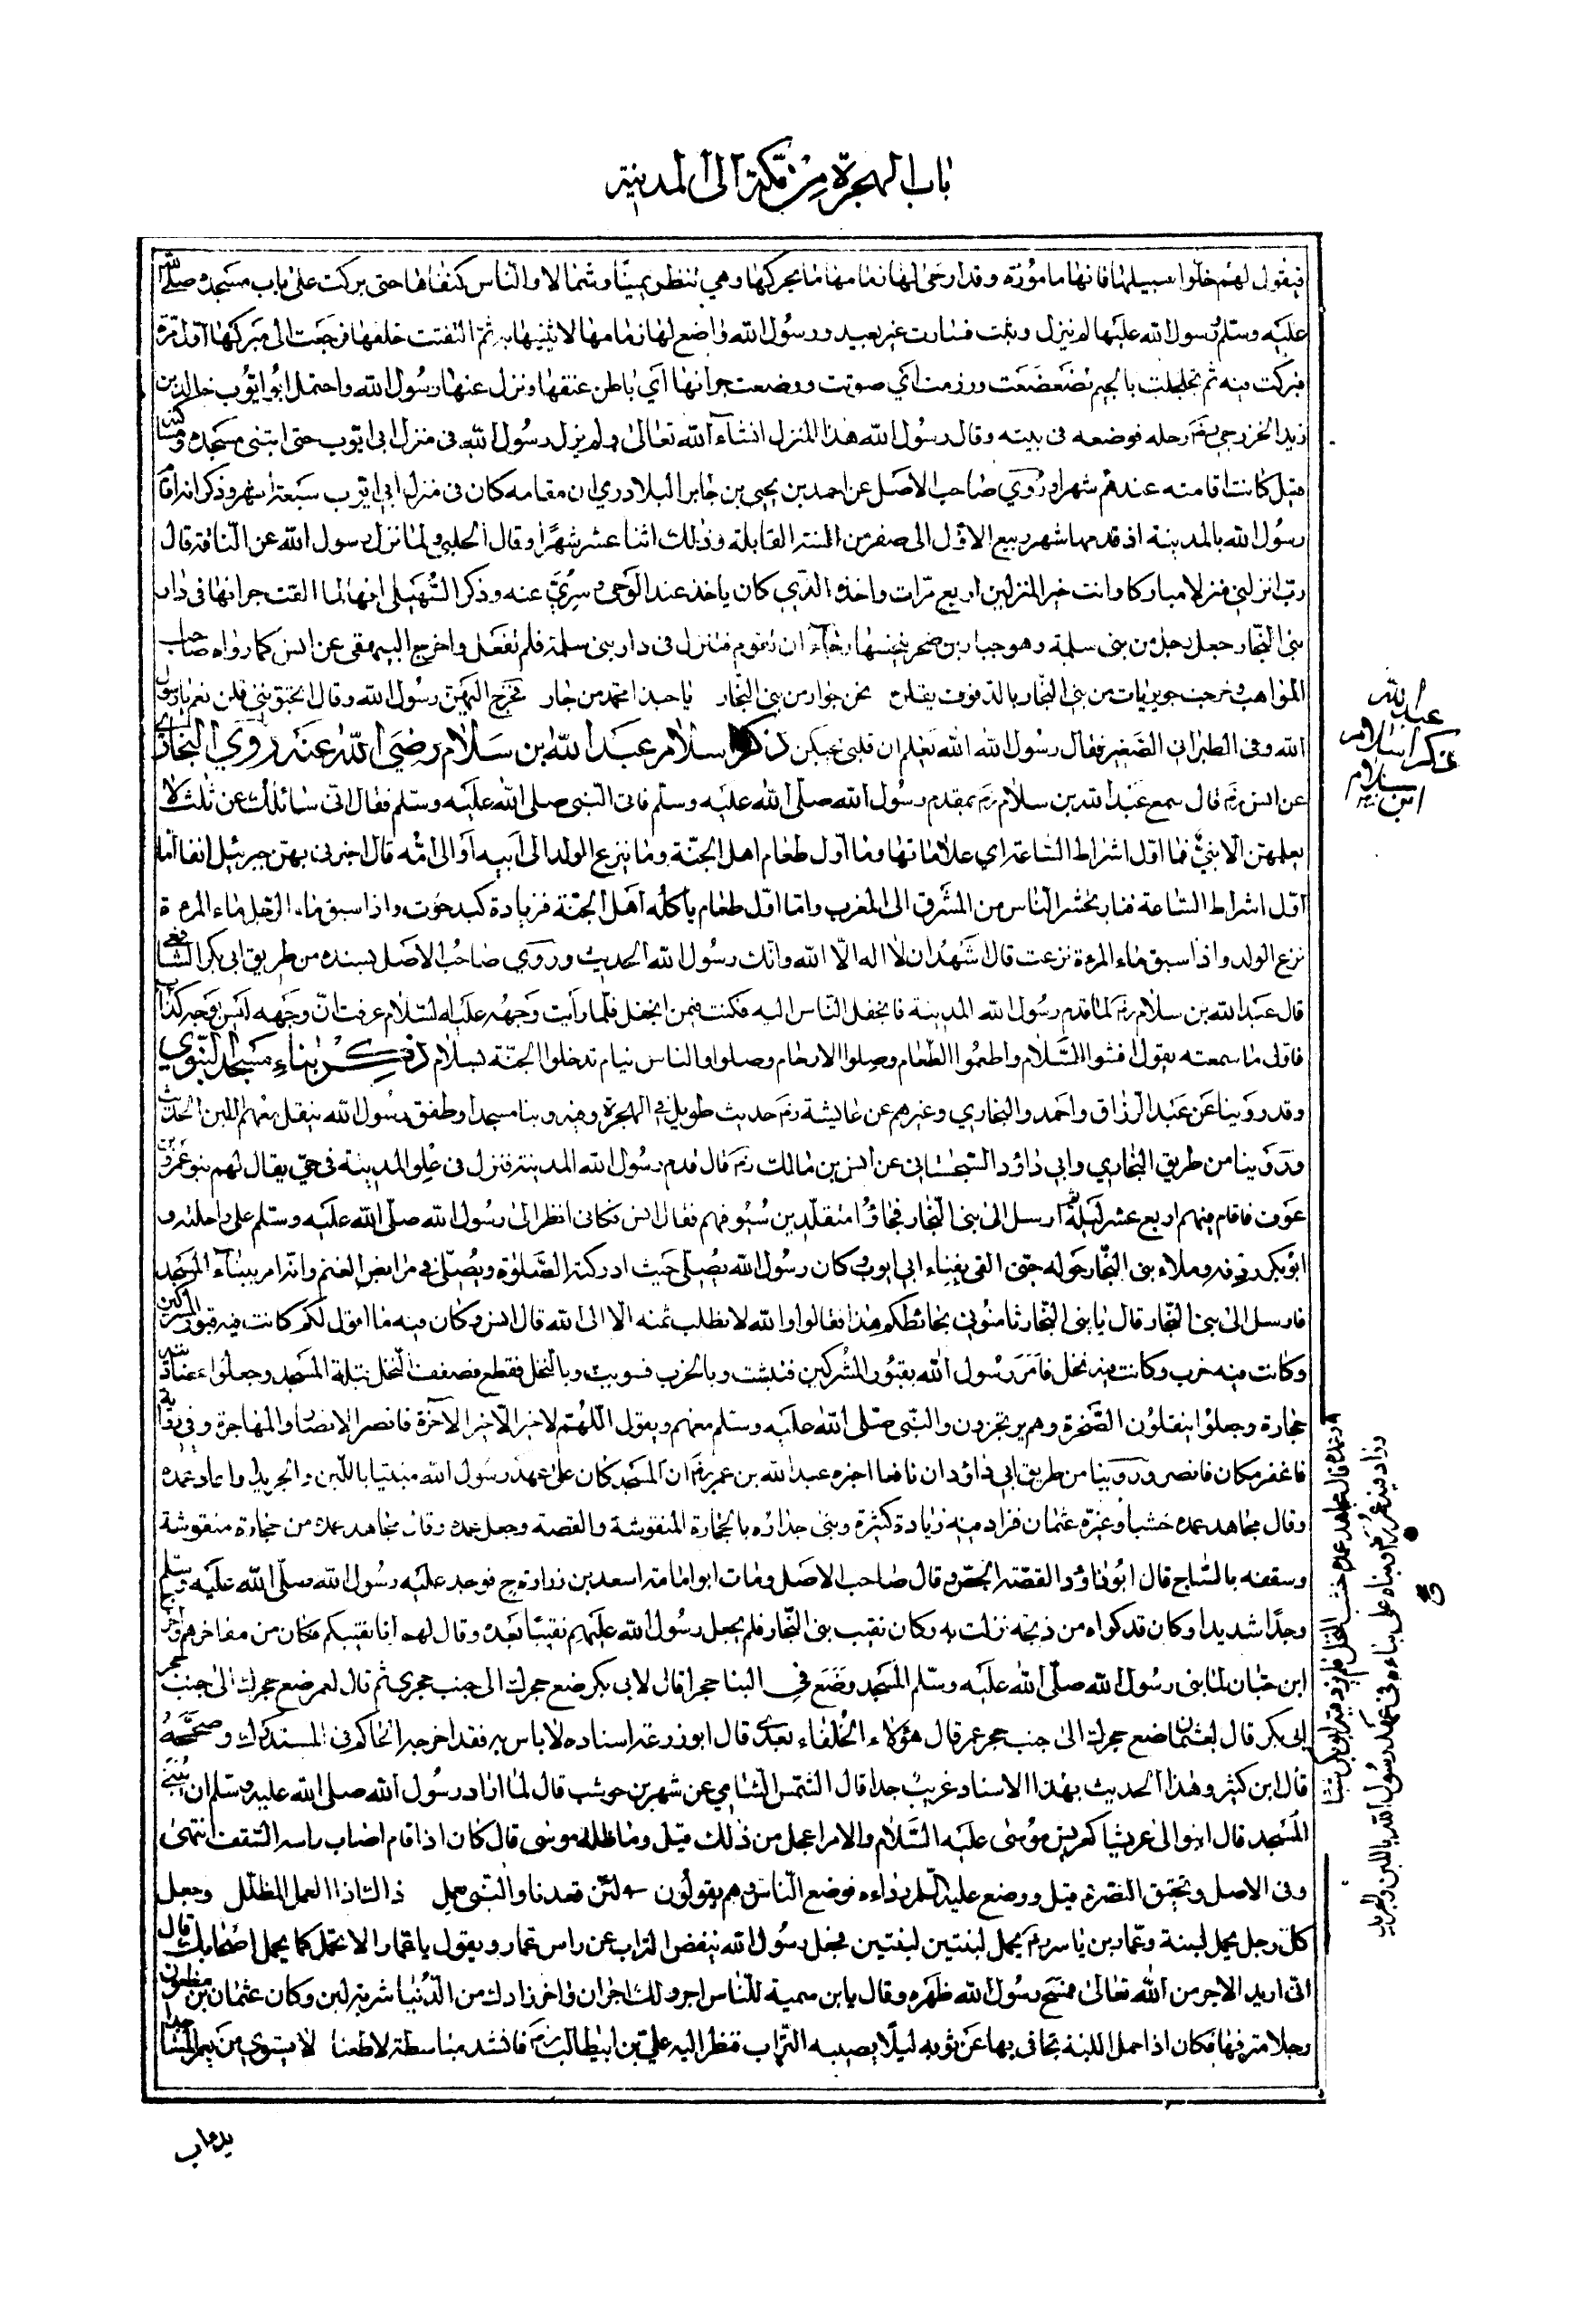 باب الهجرة من مكة الى المدينة
فيقول لهم خلوا سبيلها فانها مامورة وقد ارخى لها زمامها ما يحركها وهي تنظر يمينًا وشمالا والناس كنفاها حتى بركت على باب مسجده صلى الله
عليه وسلم ورسول الله عليها لم ينزل وثبت فسارت غير بعيد ورسول الله واضع لها زمامها لا يثنيها به ثم التفتت خلفها فرجعت الى مبركها اول مرة
فبركت فيه ثم تجلجلت بالجيم تضعضعت ورزمت اي صوتت ووضعت جرانها اي باطن عنقها ونزل عنها رسول الله واحتمل ابو ايوب خالد بن
زيد الخزرجي رضه رحله فوضعه فى بيته وقال رسول الله هذا المنزل انشاء الله تعالى ولم يزل رسول الله فى منزل ابى ايوب حتى ابتنى مسجده ومساكنه
قيل كانت اقامته عندهم شهرا وروي صاحب الاصل عن احمد بن يحيى بن جابر البلاذري ان مقامه كان فى منزل ابى ايوب سبعة اشهر وذكر انه اقام
رسول الله بالمدينة اذ قدمها شهر ربيع الاول الى صفر من السنة القابلة وذلك اثنا عشر شهرًا وقال الحلبي ولما نزل رسول الله عن الناقة قال
رب انزلني منزلا مباركا وانت خير المنزلين اربع مرات واخذه الذي كان ياخذ عند الوحي وسري عنه وذكر السهيلى انها لما القت جرانها فى دار
بنى النجار جعل رجل من بنى سلمة وهو جبار بن صخر ينخسها رجاء ان تقوم فتنزل فى دار بنى سلمة فلم تفعل واخرج البيهقى عن انس كما رواه صاحب
المواهب وخرجت جويريات من بنى النجار بالدفوف يقلن نحن جوار من بنى النجار يا حبذا محمد من جار فخرج اليهن رسول الله وقال اتحبوننى قلن نعم يا رسول
الله وفى الطبرانى الصغير فقال رسول الله الله يعلم ان قلبى يحبكن ذكر اسلام عبد الله بن سلام رضي الله عنه روي البخاري
عن انس رضه قال سمع عبد الله بن سلام رضه بمقدم رسول الله صلى الله عليه وسلم فاتى النبى صلى الله عليه وسلم فقال انى سائلك عن ثلث لا
يعلمهن الا نبي فما اول اشراط الساعة اي علاماتها وما اول طعام اهل الجنة وما ينزع الولد الى ابيه او الى امه قال اخبرنى بهن جبرئيل انفا اما
اول اشراط الساعة فنار تحشر الناس من المشرق الى المغرب واما اول طعام ياكله اهل الجنة فزيادة كبد حوت واذا سبق ماء الرجل ماء المرءة
نزع الولد واذا سبق ماء المرءة نزعت قال اشهد ان لا اله الا الله وانك رسول الله الحديث وروي صاحب الاصل بسنده من طريق ابى بكر الشافعي
قال عبد الله بن سلام رضه لما قدم رسول الله المدينة فانجفل الناس اليه فكنت فيمن انجفل فلما رايت وجهه عليه السلام عرفت ان وجهه ليس بوجه كذاب
فاول ما سمعته يقول افشوا السلام واطعموا الطعام وصلوا الارحام وصلوا والناس نيام تدخلوا الجنة بسلام ذكر بناء مسجد النبوي
وقد روينا عن عبد الرزاق واحمد والبخاري وغيرهم عن عايشة رضه حديث طويل فى الهجرة وفيه وبنا مسجدا وطفق رسول الله ينقل معهم اللبن الحديث
وروينا من طريق البخاري وابى داؤد السجستانى عن انس بن مالك رضه قال قدم رسول الله المدينة فنزل فى علو المدينة فى حي يقال لهم بنو عمرو بن
عوف فاقام فيهم اربع عشر ليلة ثم ارسل الى بنى النجار فجاؤا متقلدين سيوفهم فقال انس فكانى انظر الى رسول الله صلى الله عليه وسلم على راحلته و
ابو بكر ردفه وملاء بنى النجار حوله حتى القى بفناء ابى ايوب وكان رسول الله يصلى حيث ادركته الصلوة ويصلى فى مرابض الغنم وانه امر ببناء المسجد
فارسل الى بنى النجار قال يا بنى النجار ثامنونى بحائطكم هذا فقالوا والله لا نطلب ثمنه الا الى الله قال انس وكان فيه ما اقول لكم كانت فيه قبور المشركين
وكانت فيه خرب وكانت فيه نخل فامر رسول الله بقبور المشركين فنبشت وبالخرب فسويت وبالنخل فقطع فصففت النخل قبلة المسجد وجعلوا عضادتيه
حجارة وجعلوا ينقلون الصخرة وهم يرتجزون والنبى صلى الله عليه وسلم معهم ويقول اللهم لا خير الا خير الآخرة فانصر الانصار والمهاجرة وفى رواية
فاغفر مكان فانصر وروينا من طريق ابى داؤد ان نافعا اخبره عبد الله بن عمر رضه ان المسجد كان على عهد رسول الله مبنيا باللبن والجريد واعاد عمده
وقال مجاهد عمده خشبا وغيره عثمان فزاد فيه زيادة كثيرة وبنى جداره بالحجارة المنقوشة والقصة وجعل عمده وقال مجاهد عمده من حجارة منقوشة
وسقفه بالساج قال ابو داؤد القصة الجص وقال صاحب الاصل ومات ابو امامة اسعد بن زرارة ح فوجد عليه رسول الله صلى الله عليه وسلم
وجدًا شديدا وكان قد كواه من ذبحة نزلت به وكان نقيب بنى النجار فلم يجعل رسول الله عليهم نقيبًا بعده وقال لهم انا نقيبكم فكان من مفاخرهم واخرج
ابن حبان لما بنى رسول الله صلى الله عليه وسلم المسجد وضع فى البنا حجرا قال لابى بكر ضع حجرك الى جنب حجري ثم قال لعمر ضع حجرك الى جنب حجر
ابى بكر قال لعثمان ضع حجرك الى جنب حجر عمر قال هؤلاء الخلفاء بعدي قال ابو زرعة اسناده لا باس به فقد اخرجه الحاكم فى المستدرك وصححه
قال ابن كثير وهذا الحديث بهذا الاسناد غريب جدا قال الشمس الشامي عن شهر بن حوشب قال لما اراد رسول الله صلى الله عليه وسلم ان يبنى
المسجد قال ابنوا لى عريشا كعريش موسى عليه السلام والامر اعجل من ذلك قيل وما ظلة موسى قال كان اذا قام اصاب راسه السقف انتهى
وفى الاصل وتحقيق النصرة قيل ووضع عليه السلم رداءه فوضع الناس وهم يقولون لئن قعدنا والنبى يعمل ذاك اذا العمل المظلل وجعل
كل رجل يحمل لبنة وعمار بن ياسر رضه يحمل لبنتين لبنتين فجعل رسول الله ينفض التراب عن راس عمار ويقول يا عمار الا تحمل كما يحمل اصحابك قال
انى اريد الاجر من الله تعالى فمسح رسول الله ظهره وقال يا ابن سمية للناس اجر ولك اجران واخر زادك من الدنيا شربة لبن وكان عثمان بن مظعون
رجلا مترفها فكان اذا حمل اللبنة تجافى بها عن ثوبه ليلًا يصيبه التراب فنظر اليه علي بن ابيطالب رضه فانشد مباسطة لا طعنا لا يستوي من يعمر المساجدا
عبد الله
ذكر اسلام
ابن سلام
وزاد فيه عمر رضه وبناه على بناءه فى عهد رسول الله باللبن والجريد
يدءاب